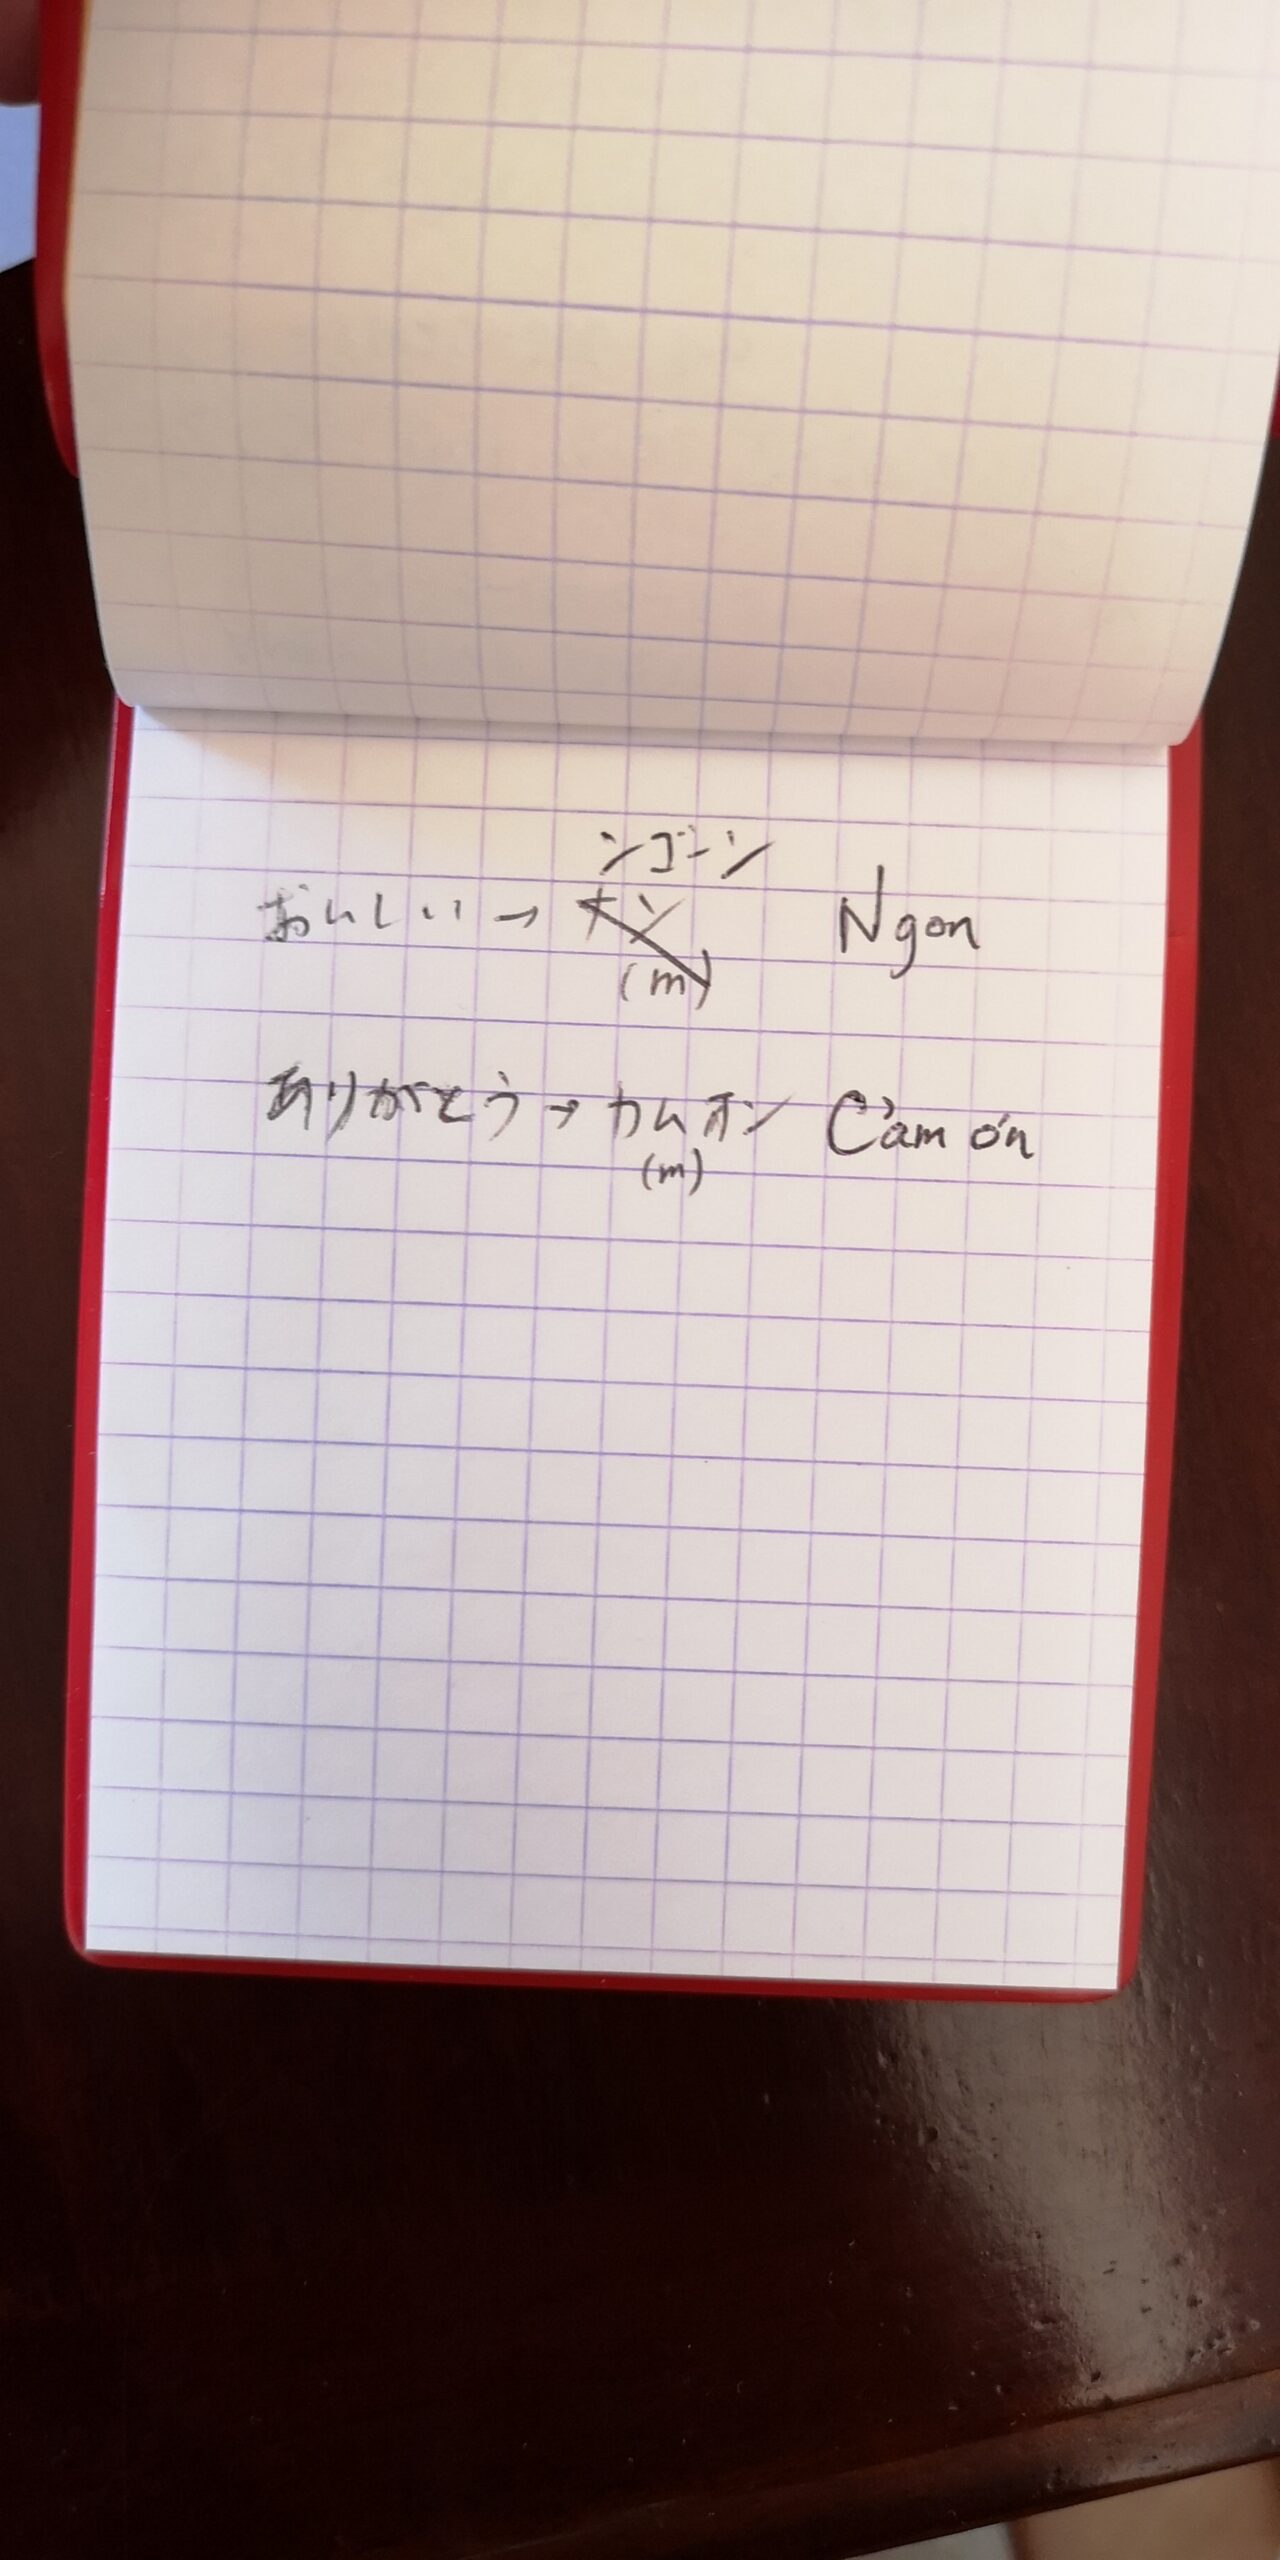 ンゴーン
おいしい → オン Ngon
(m)
ありがとう → カムオン Cảm ơn
(m)